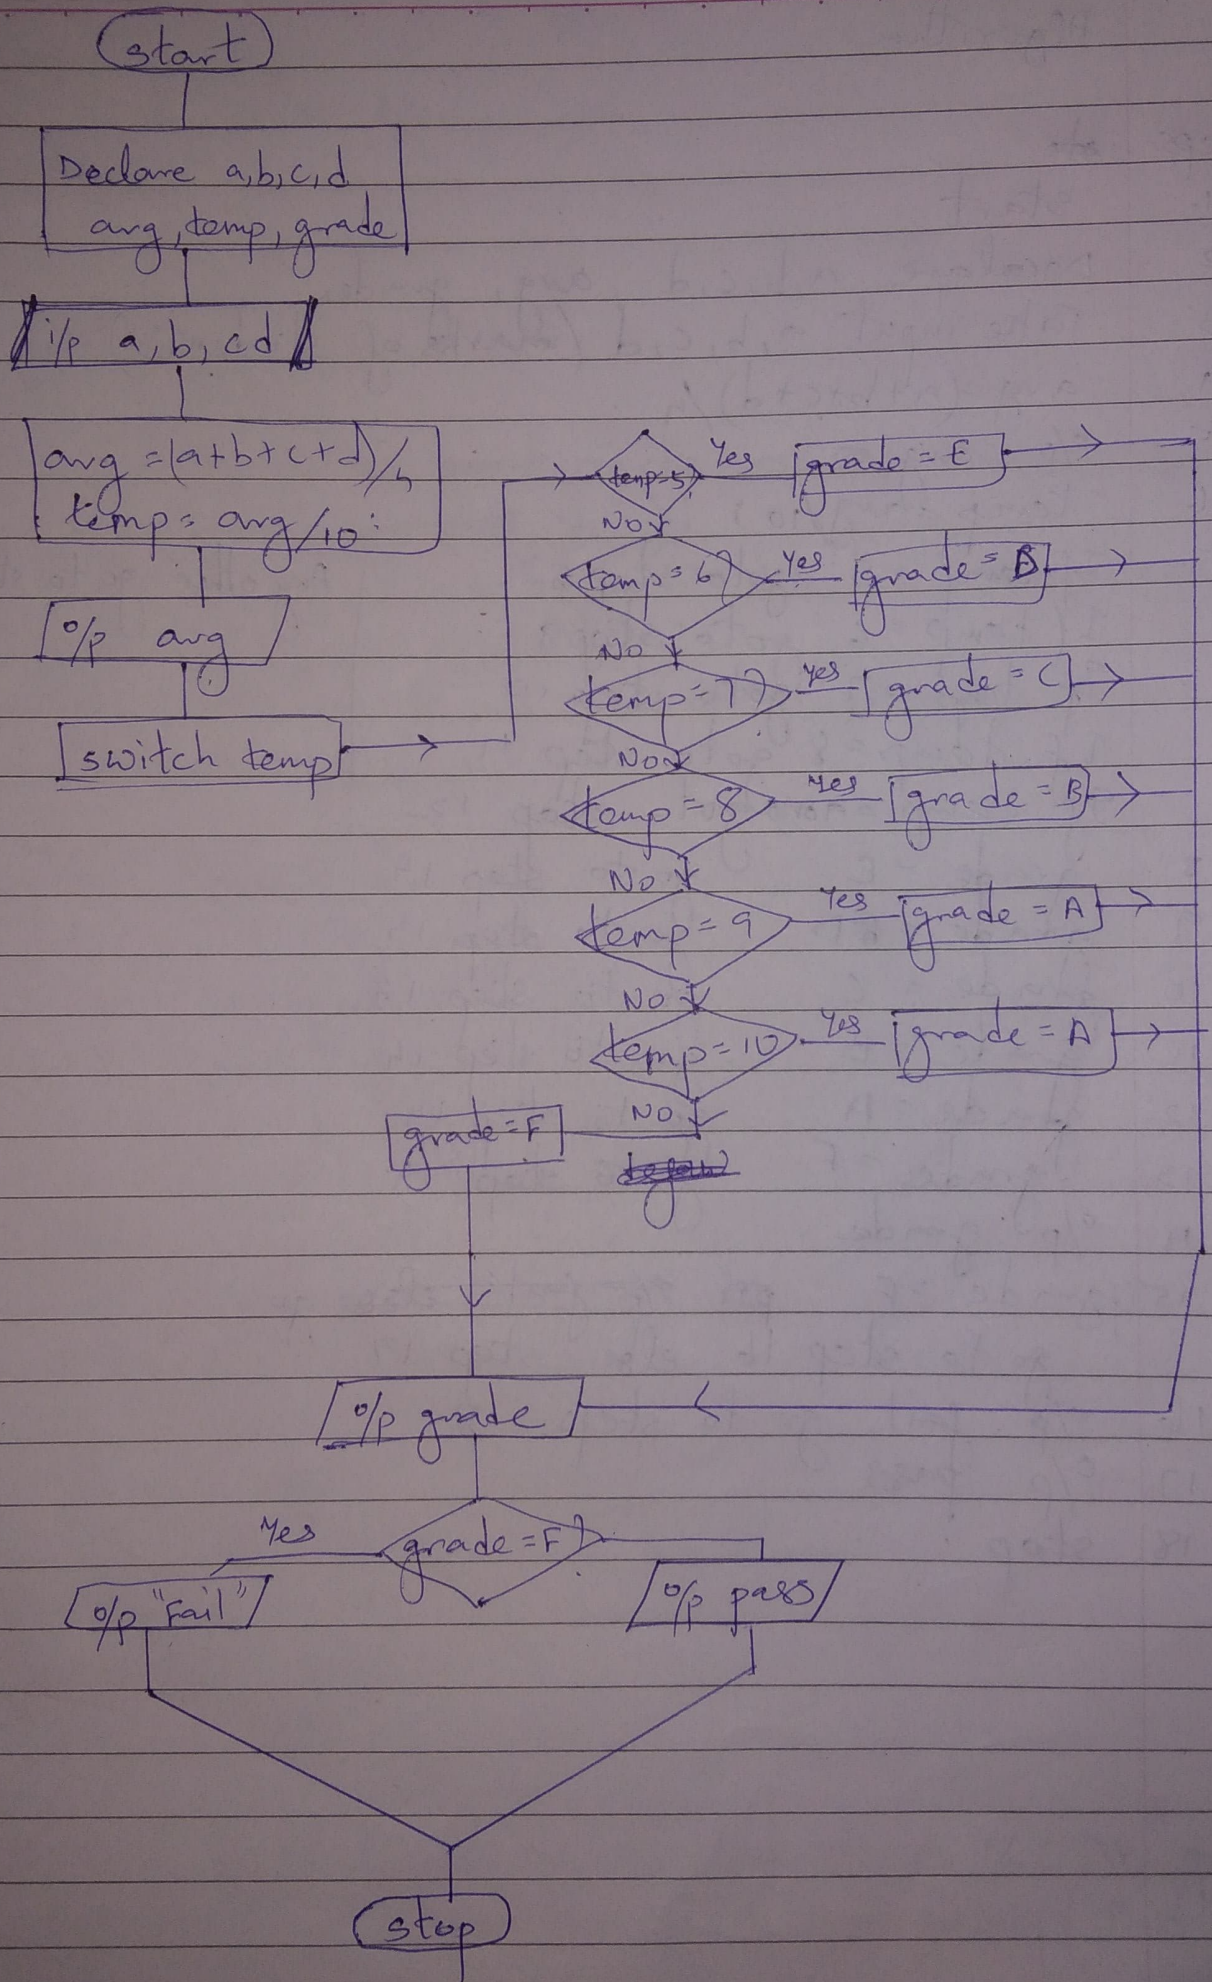 start
Declare a,b,c,d
avg, temp, grade
i/p a, b, c d
avg = (a+b+c+d)/4
temp = avg/10
o/p avg
switch temp
temp=5
Yes
grade = E
NO
temp = 6?
Yes
grade = D
NO
temp = 7?
Yes
grade = C
NO
temp = 8
Yes
grade = B
NO
temp = 9
Yes
grade = A
NO
temp = 10
Yes
grade = A
NO
grade = F
o/p grade
grade = F?
Yes
o/p "Fail"
o/p pass
stop